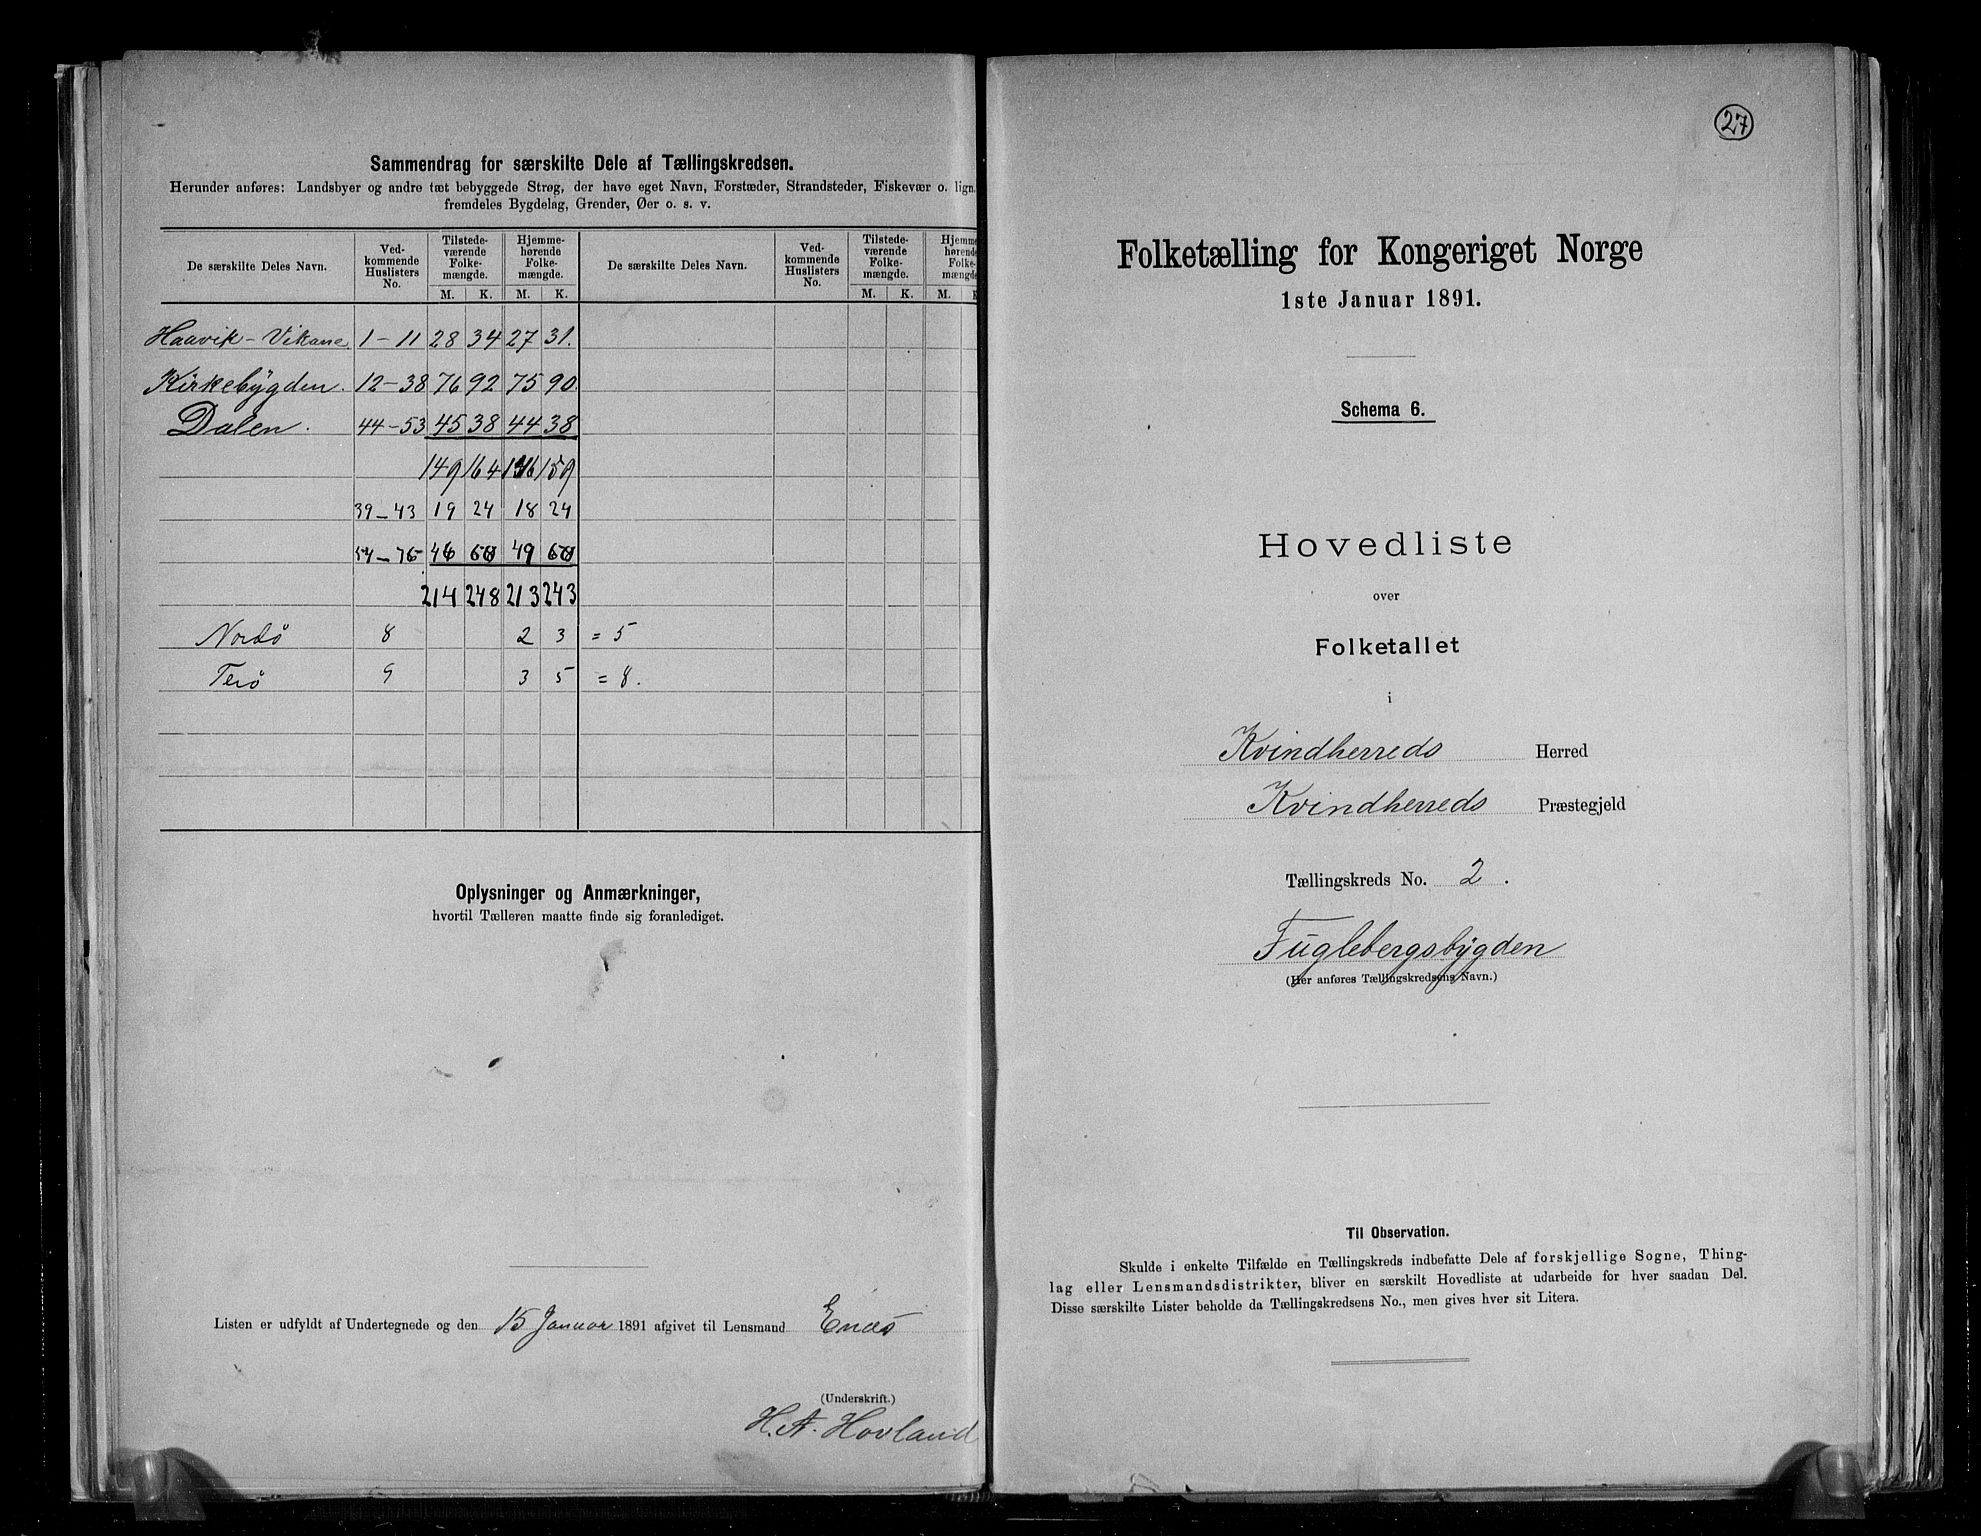 Sammendrag for særskilte Dele af Tællingskredsen.
Herunder anføres: Landsbyer og andre tæt bebyggede Strøg, der have eget Navn, Forstæder, Strandsteder, Fiskevær o. lign.
fremdeles Bygdelag, Grender, Øer o. s. v.
De særskilte Deles Navn. Ved-kommende Huslisters No. Tilstede-værende Folke-mængde. Hjemme-hørende Folke-mængde. De særskilte Deles Navn. Ved-kommende Huslisters No. Tilstede-værende Folke-mængde. Hjemme-hørende Folke-mængde
M. K. M. K. M. K. M. K
Haavik - Vikane 1 - 11 28 34 27 31.
Kirkebygden. 12 - 38 76 92 75 90.
Dalen. 44 - 53 45 38 44 38
149 164 146 159
39 - 43 19 24 18 24
54 - 75 46 60 49 60
214 248 213 243
Nordö 8 2 3 = 5
Terö 9 3 5 = 8.
Oplysninger og Anmærkninger,
hvortil Tælleren maatte finde sig foranlediget.
Listen er udfyldt af Undertegnede og den 15 Januar 1891 afgivet til Lensmand Enæs
(Underskrift.)
H. A. Hovland
27
Folketælling for Kongeriget Norge
1ste Januar 1891.
Schema 6.
Hovedliste
over
Folketallet
i
Kvindherreds Herred
Kvindherreds Præstegjeld
Tællingskreds No. 2.
Fuglebergsbygden
(Her anføres Tællingskredsens Navn.)
Til Observation.
Skulde i enkelte Tilfælde en Tællingskreds indbefatte Dele af forskjellige Sogne, Thing-
lag eller Lensmandsdistrikter, bliver en særskilt Hovedliste at udarbeide for hver saadan Del.
Disse særskilte Lister beholde da Tællingskredsens No., men gives hver sit Litera.